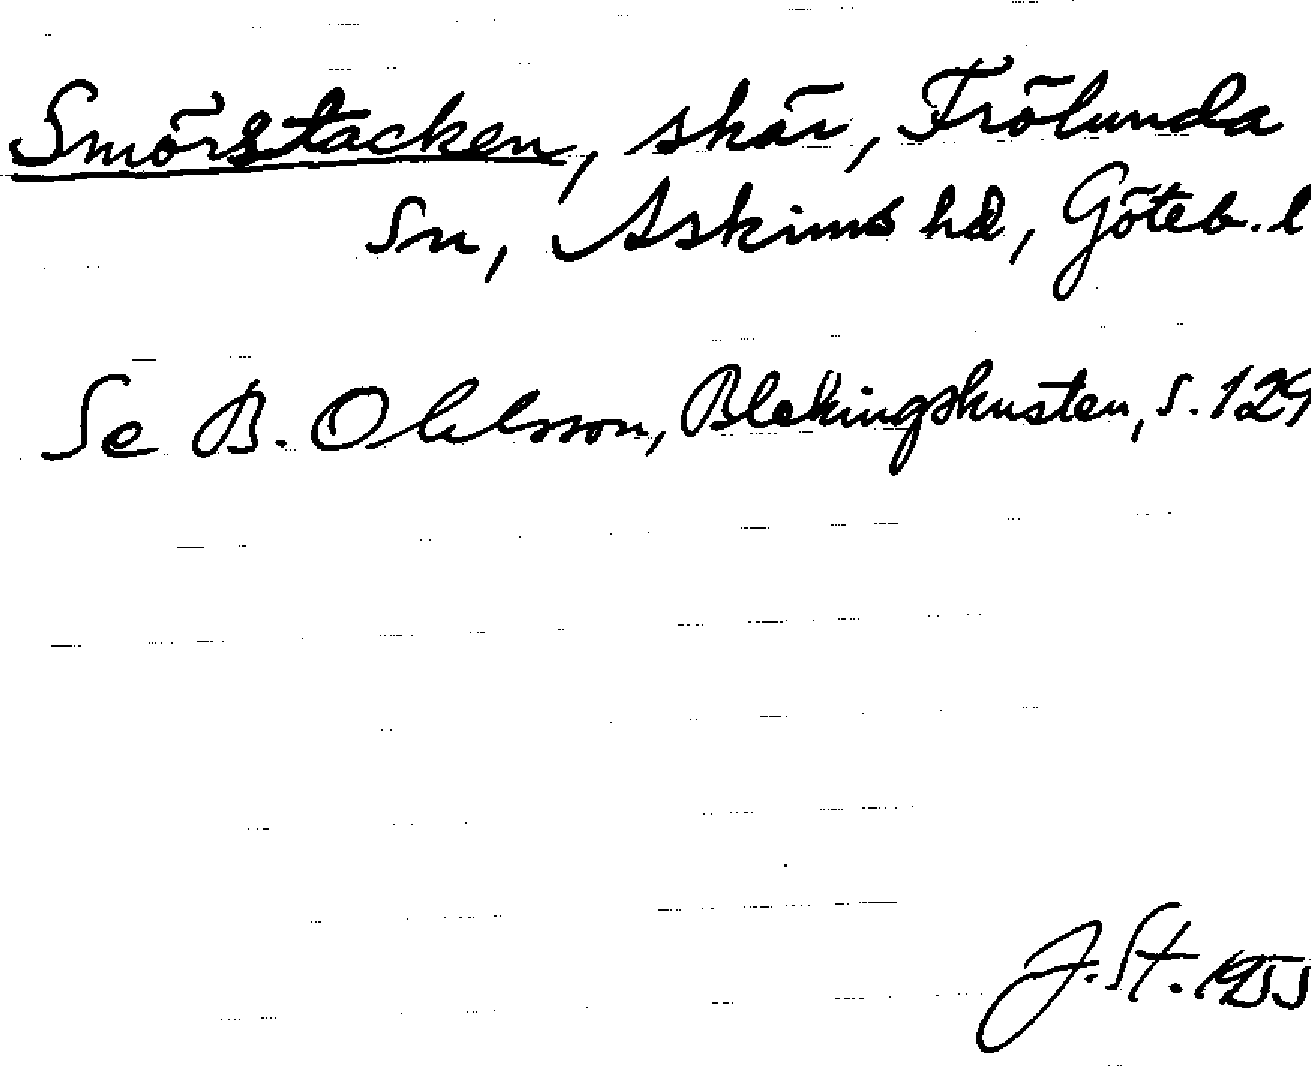 Smörstacken, skär, Frölunda
Sn, Askims hd, Göteb. l
Se B. Ohlsson, Blekingskusten, s. 129
J. St. 1955